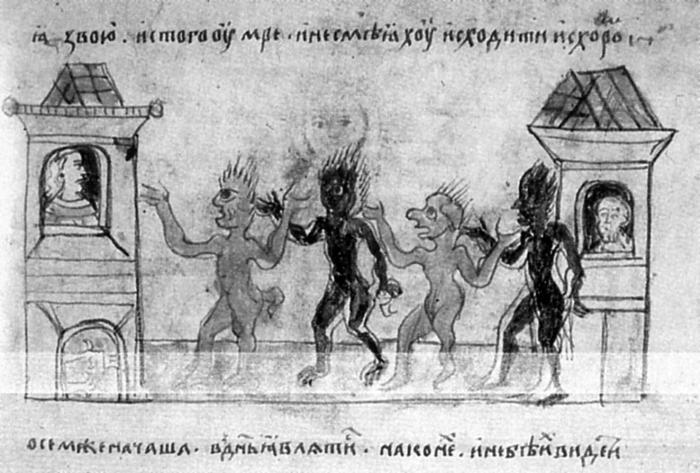 ꙗзвою . и с того оумре . и не смѣꙗхоу исходити ис хоро
о семже начаша . въ днь ꙗвлѧти . на коне . и не бѣ и видѣти